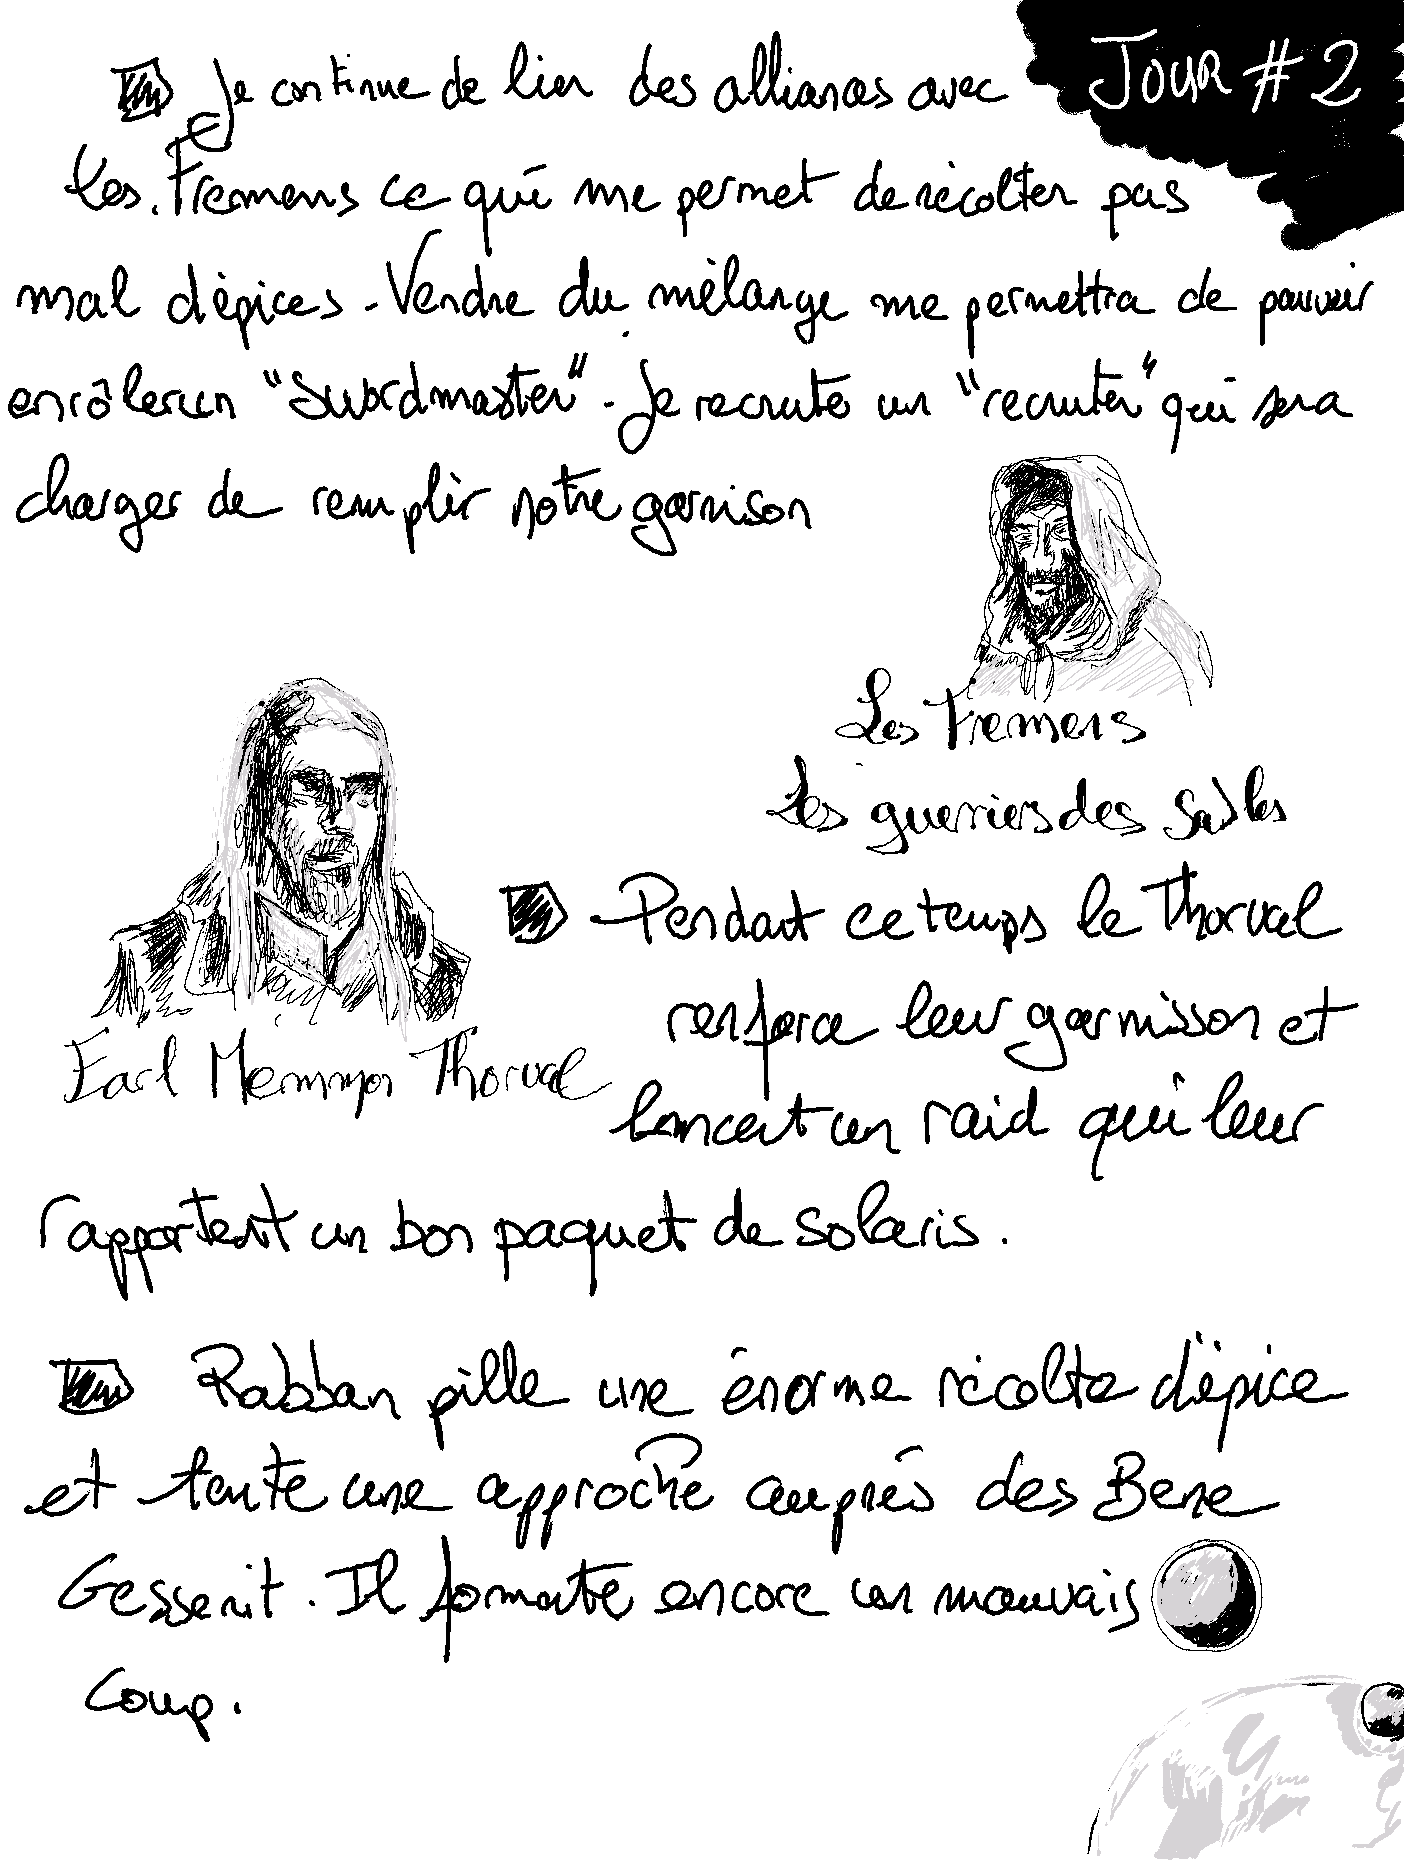 JOUR #2
Je continue de lier des alliances avec
les Fremens ce qui me permet de récolter pas
mal d'épices. Vendre du mélange me permettra de pouvoir
enrôler un "Swordmaster". Je recrute un "recruter" qui sera
charger de remplir notre garnison
Les Fremens
Les guerriers des sables
Earl Memnon Thorval
Pendant ce temps le Thorval
renforce leur garnisson et
lancent un raid qui leur
rapportent un bon paquet de solaris.
Rabban pille une énorme récolte d'épice
et tente une approche auprès des Bene
Gesserit. Il fomente encore un mauvais
coup.